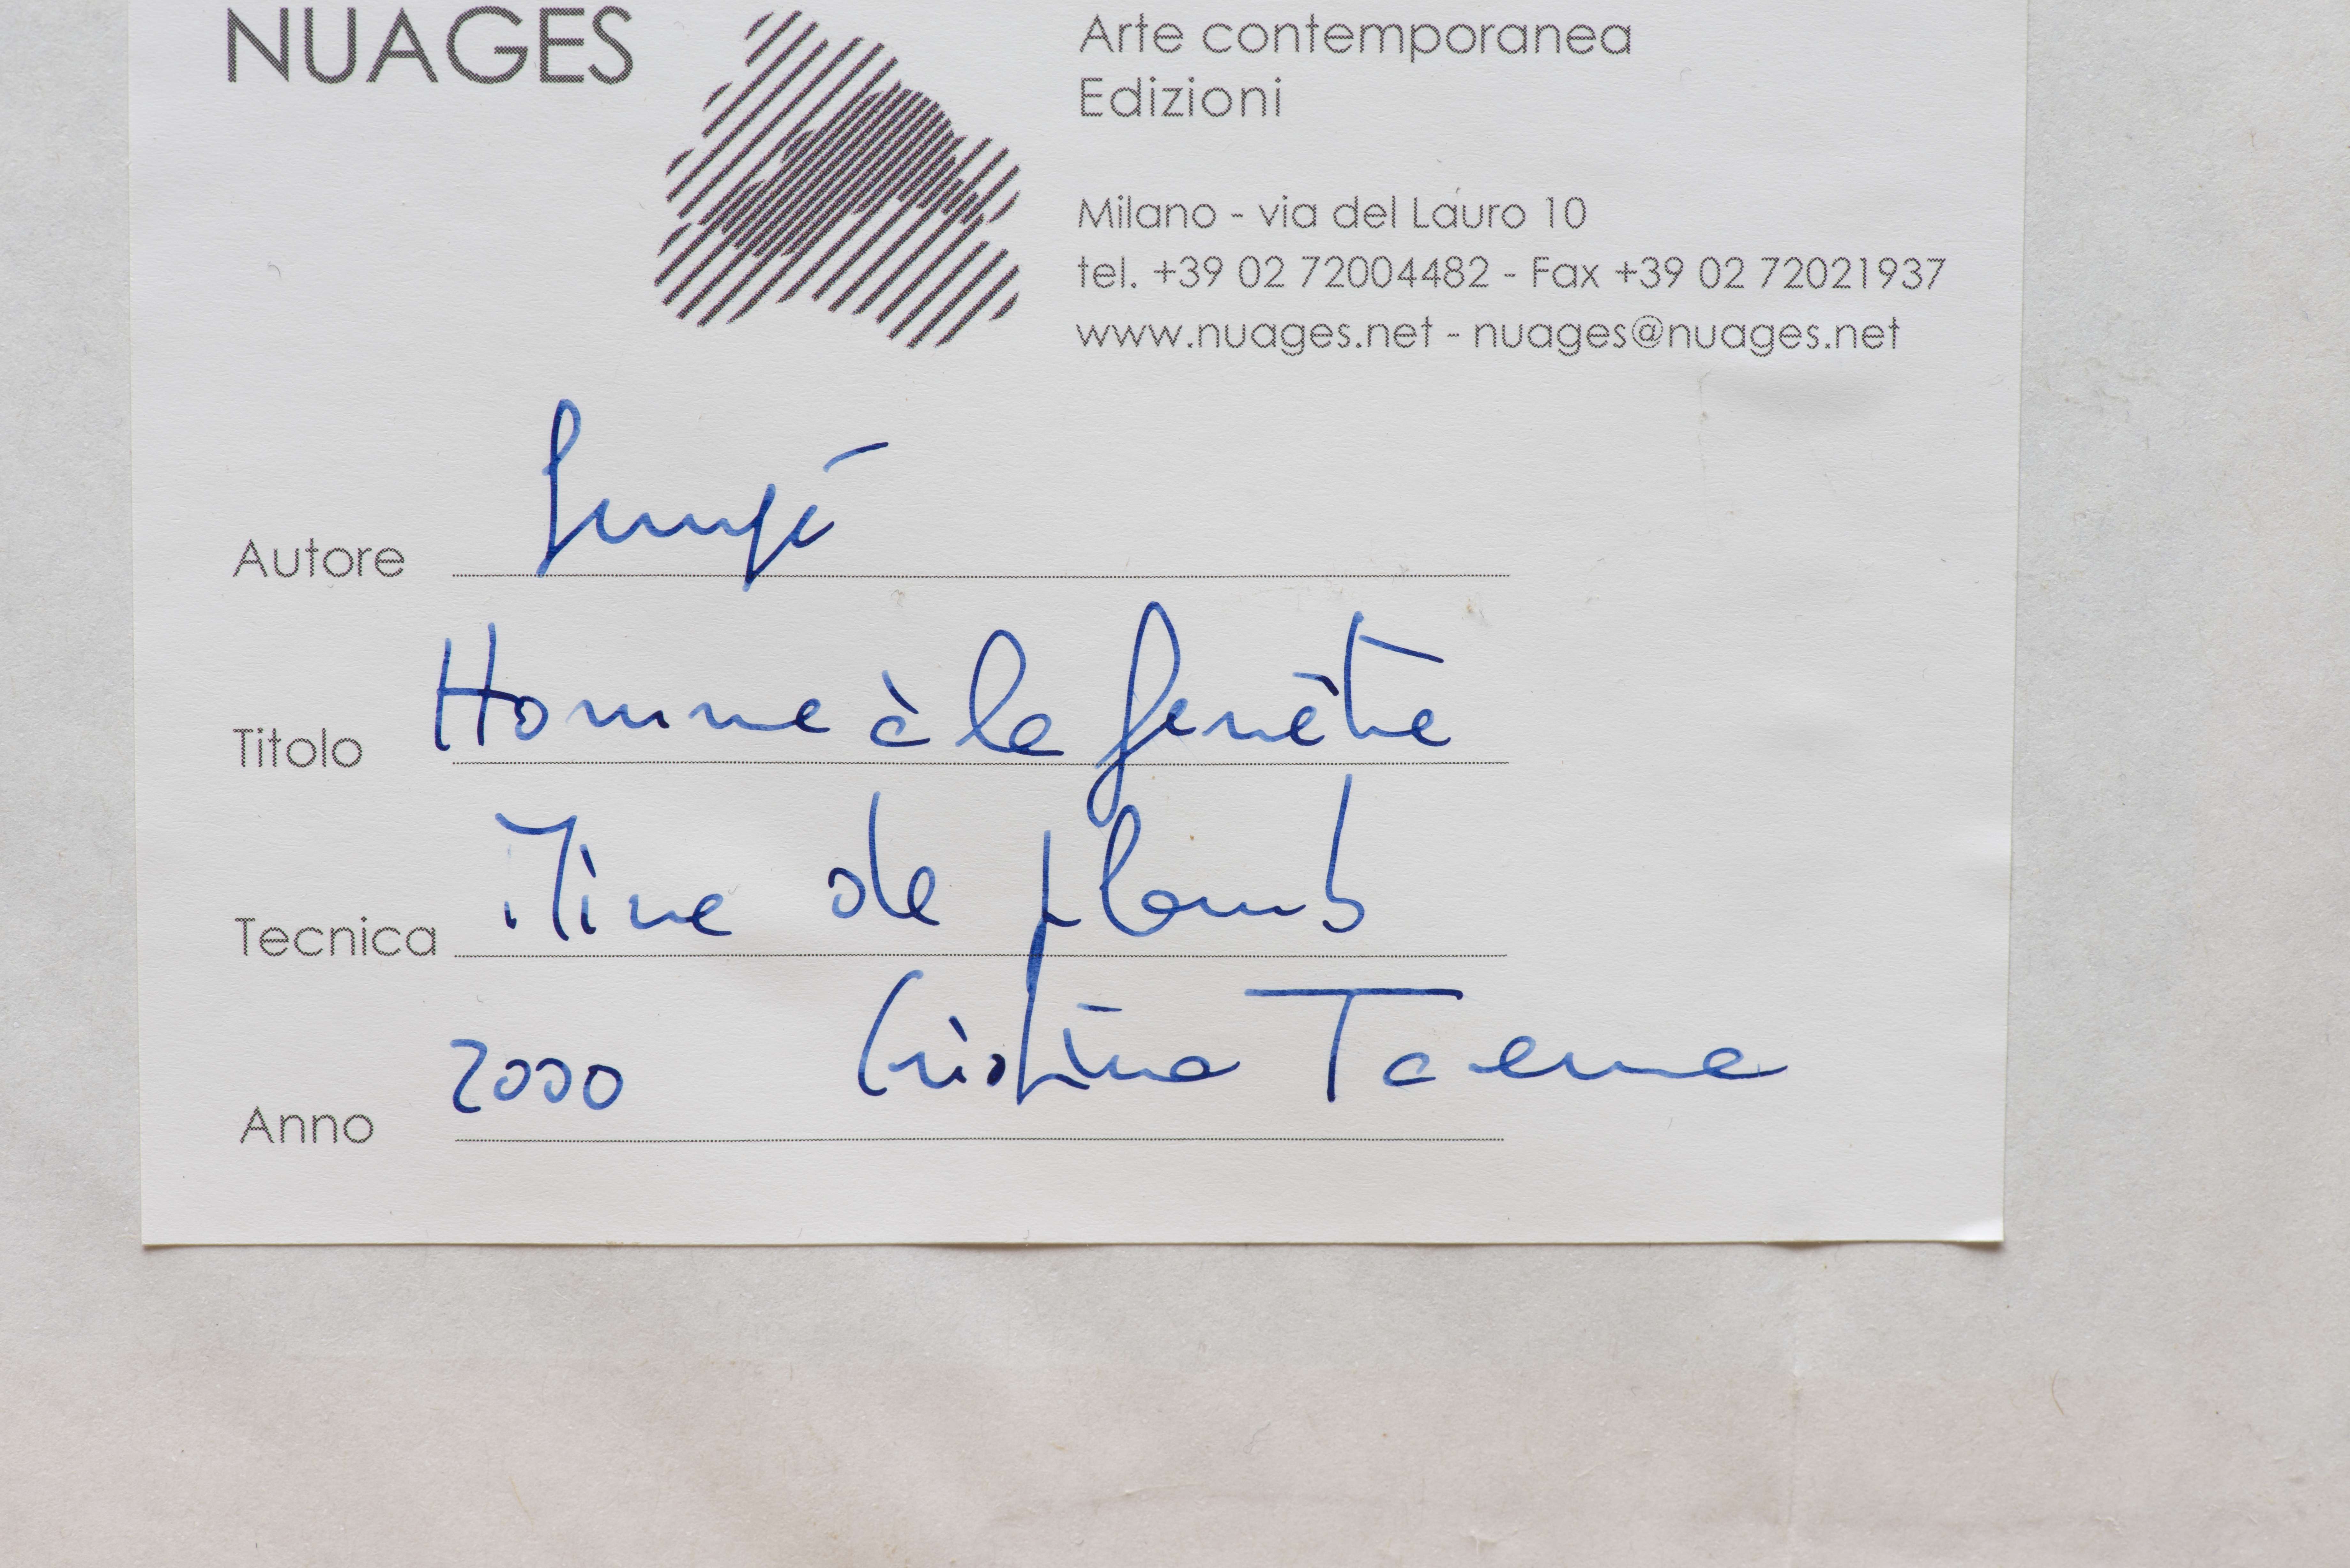 NUAGES
Arte contemporanea
Edizioni
Milano - via del Lauro 10
tel. +39 02 72004482 - Fax +39 02 72021937
www.nuages.net - nuages@nuages.net
Autore
Titolo Homme à la fenêtre
Tecnica Mine de plomb
Anno 2000 Cristina Taverna